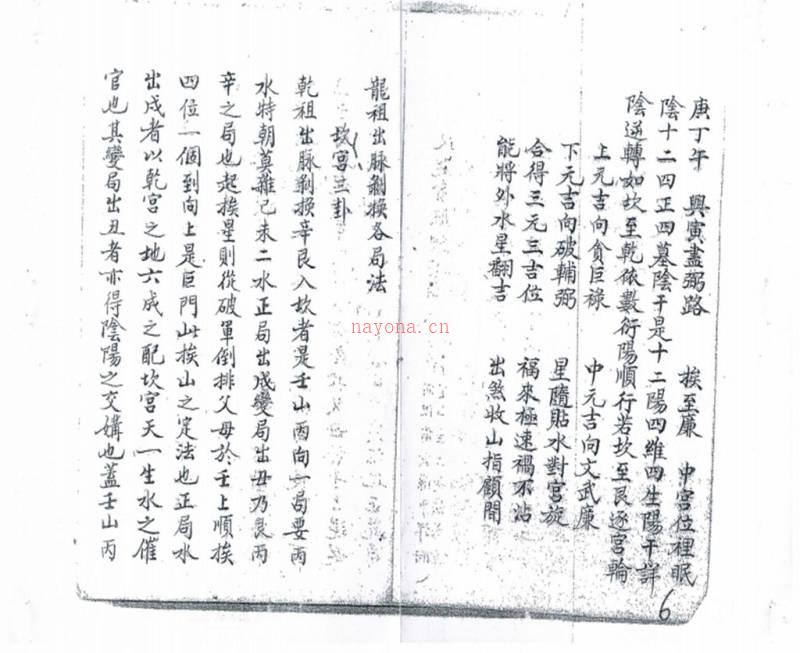 庚丁午　興寅盡弼路　挨至廉　中宮位裡眠
陰十二四正四墓陰干是十二陽四維四生陽干詳
陰逆轉如坎至乾依數衍陽順行若坎至艮逐宮輪
上元吉向貪巨祿　中元吉向文武廉
下元吉向破輔弼　星隨貼水對宮旋
合得三元三吉位　福來極速禍不沾
能將外水星翻吉　出煞收山指顧間
6
龍祖出脉剝換各局法
坎宮三卦
乾祖出脉剝換辛艮入坎者是壬山丙向一局要丙
水特朝莫雜己未二水正局出戍變局出丑乃艮丙
辛之局也起挨星則從破軍倒排父母於壬上順挨
四位一個到向上是巨門此挨山之定法也正局水
出戍者以乾宮之地六成之配坎宮天一生水之催
官也其變局出丑者亦得陰陽之交媾也蓋壬山丙
nayona.cn